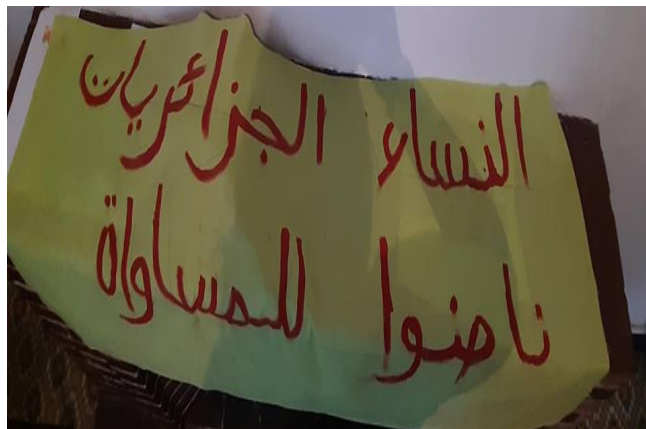 النساء الجزائريات
ناضوا للمساواة